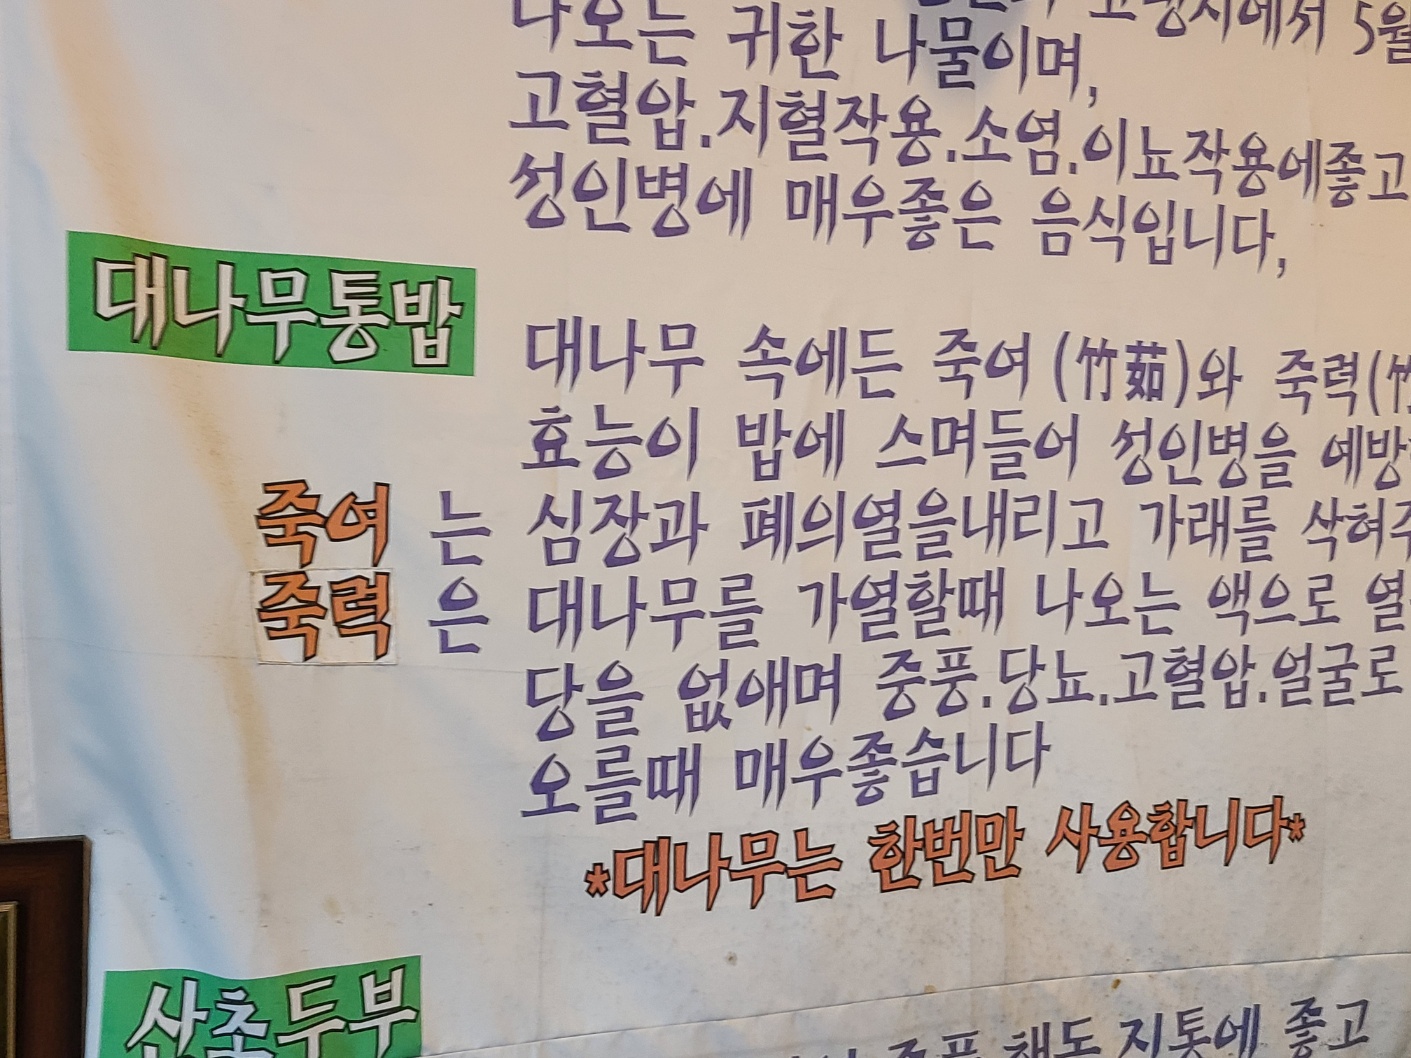 고랭지에서 5월
나오는 귀한 나물이며,
고혈압.지혈작용.소염.이뇨작용에좋고
성인병에 매우좋은 음식입니다,
대나무통밥
대나무 속에든 죽여(竹茹)와 죽력(竹
효능이 밥에 스며들어 성인병을 예방
죽여 는 심장과 폐의열을내리고 가래를 삭혀주
죽력 은 대나무를 가열할때 나오는 액으로 열
당을 없애며 중풍.당뇨.고혈압.얼굴로
오를때 매우좋습니다
*대나무는 한번만 사용합니다*
산초두부
지통에 좋고